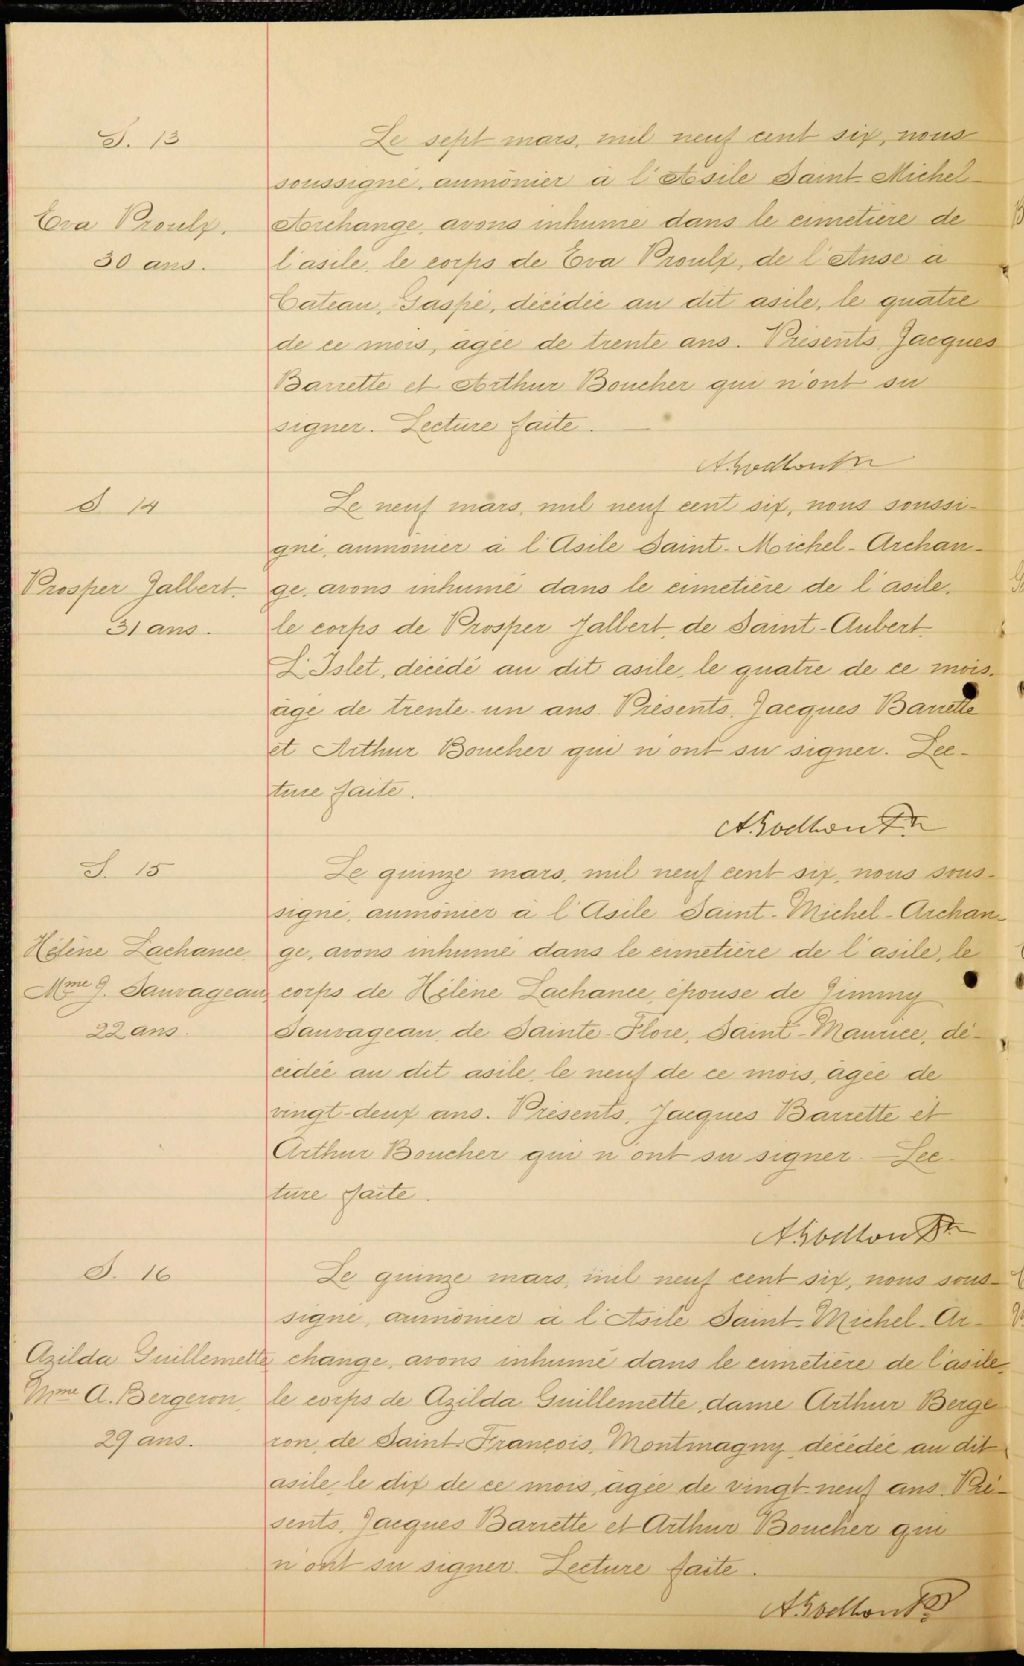 S. 13
Le sept mars, mil neuf cent six, nous
soussigné, aumônier à l'Asile Saint-Michel-
Eva Proulx,
Archange, avons inhumé dans le cimetière de
30 ans.
l'asile, le corps de Eva Proulx, de l'Anse à
Cateau, Gaspé, décédée au dit asile, le quatre
de ce mois, âgée de trente ans. Présents, Jacques
Barrette et Arthur Boucher qui n'ont su
signer. Lecture faite. —
S. 14
Le neuf mars, mil neuf cent six, nous soussi-
gné, aumônier à l'Asile Saint-Michel-Archan-
Prosper Jalbert.
ge, avons inhumé dans le cimetière de l'asile,
31 ans.
le corps de Prosper Jalbert, de Saint-Aubert,
L'Islet, décédé au dit asile, le quatre de ce mois,
âgé de trente-un ans. Présents, Jacques Barrette
et Arthur Boucher qui n'ont su signer. Lec-
ture faite.
S. 15
Le quinze mars, mil neuf cent six, nous sous-
signé, aumônier à l'Asile Saint-Michel-Archan-
Hélène Lachance,
ge, avons inhumé dans le cimetière de l'asile, le
Mme J. Sauvageau,
corps de Hélène Lachance, épouse de Jimmy
22 ans.
Sauvageau, de Sainte-Flore, Saint-Maurice, dé-
cédée au dit asile, le neuf de ce mois, âgée de
vingt-deux ans. Présents, Jacques Barrette et
Arthur Boucher qui n'ont su signer. — Lec-
ture faite.
S. 16
Le quinze mars, mil neuf cent six, nous sous-
signé, aumônier à l'Asile Saint-Michel-Ar-
Azilda Guillemette
change, avons inhumé dans le cimetière de l'asile,
Mme A. Bergeron,
le corps de Azilda Guillemette, dame Arthur Berge-
29 ans.
ron, de Saint-François, Montmagny, décédée au dit
asile, le dix de ce mois, âgée de vingt-neuf ans. Pré-
sents, Jacques Barrette et Arthur Boucher qui
n'ont su signer. Lecture faite.